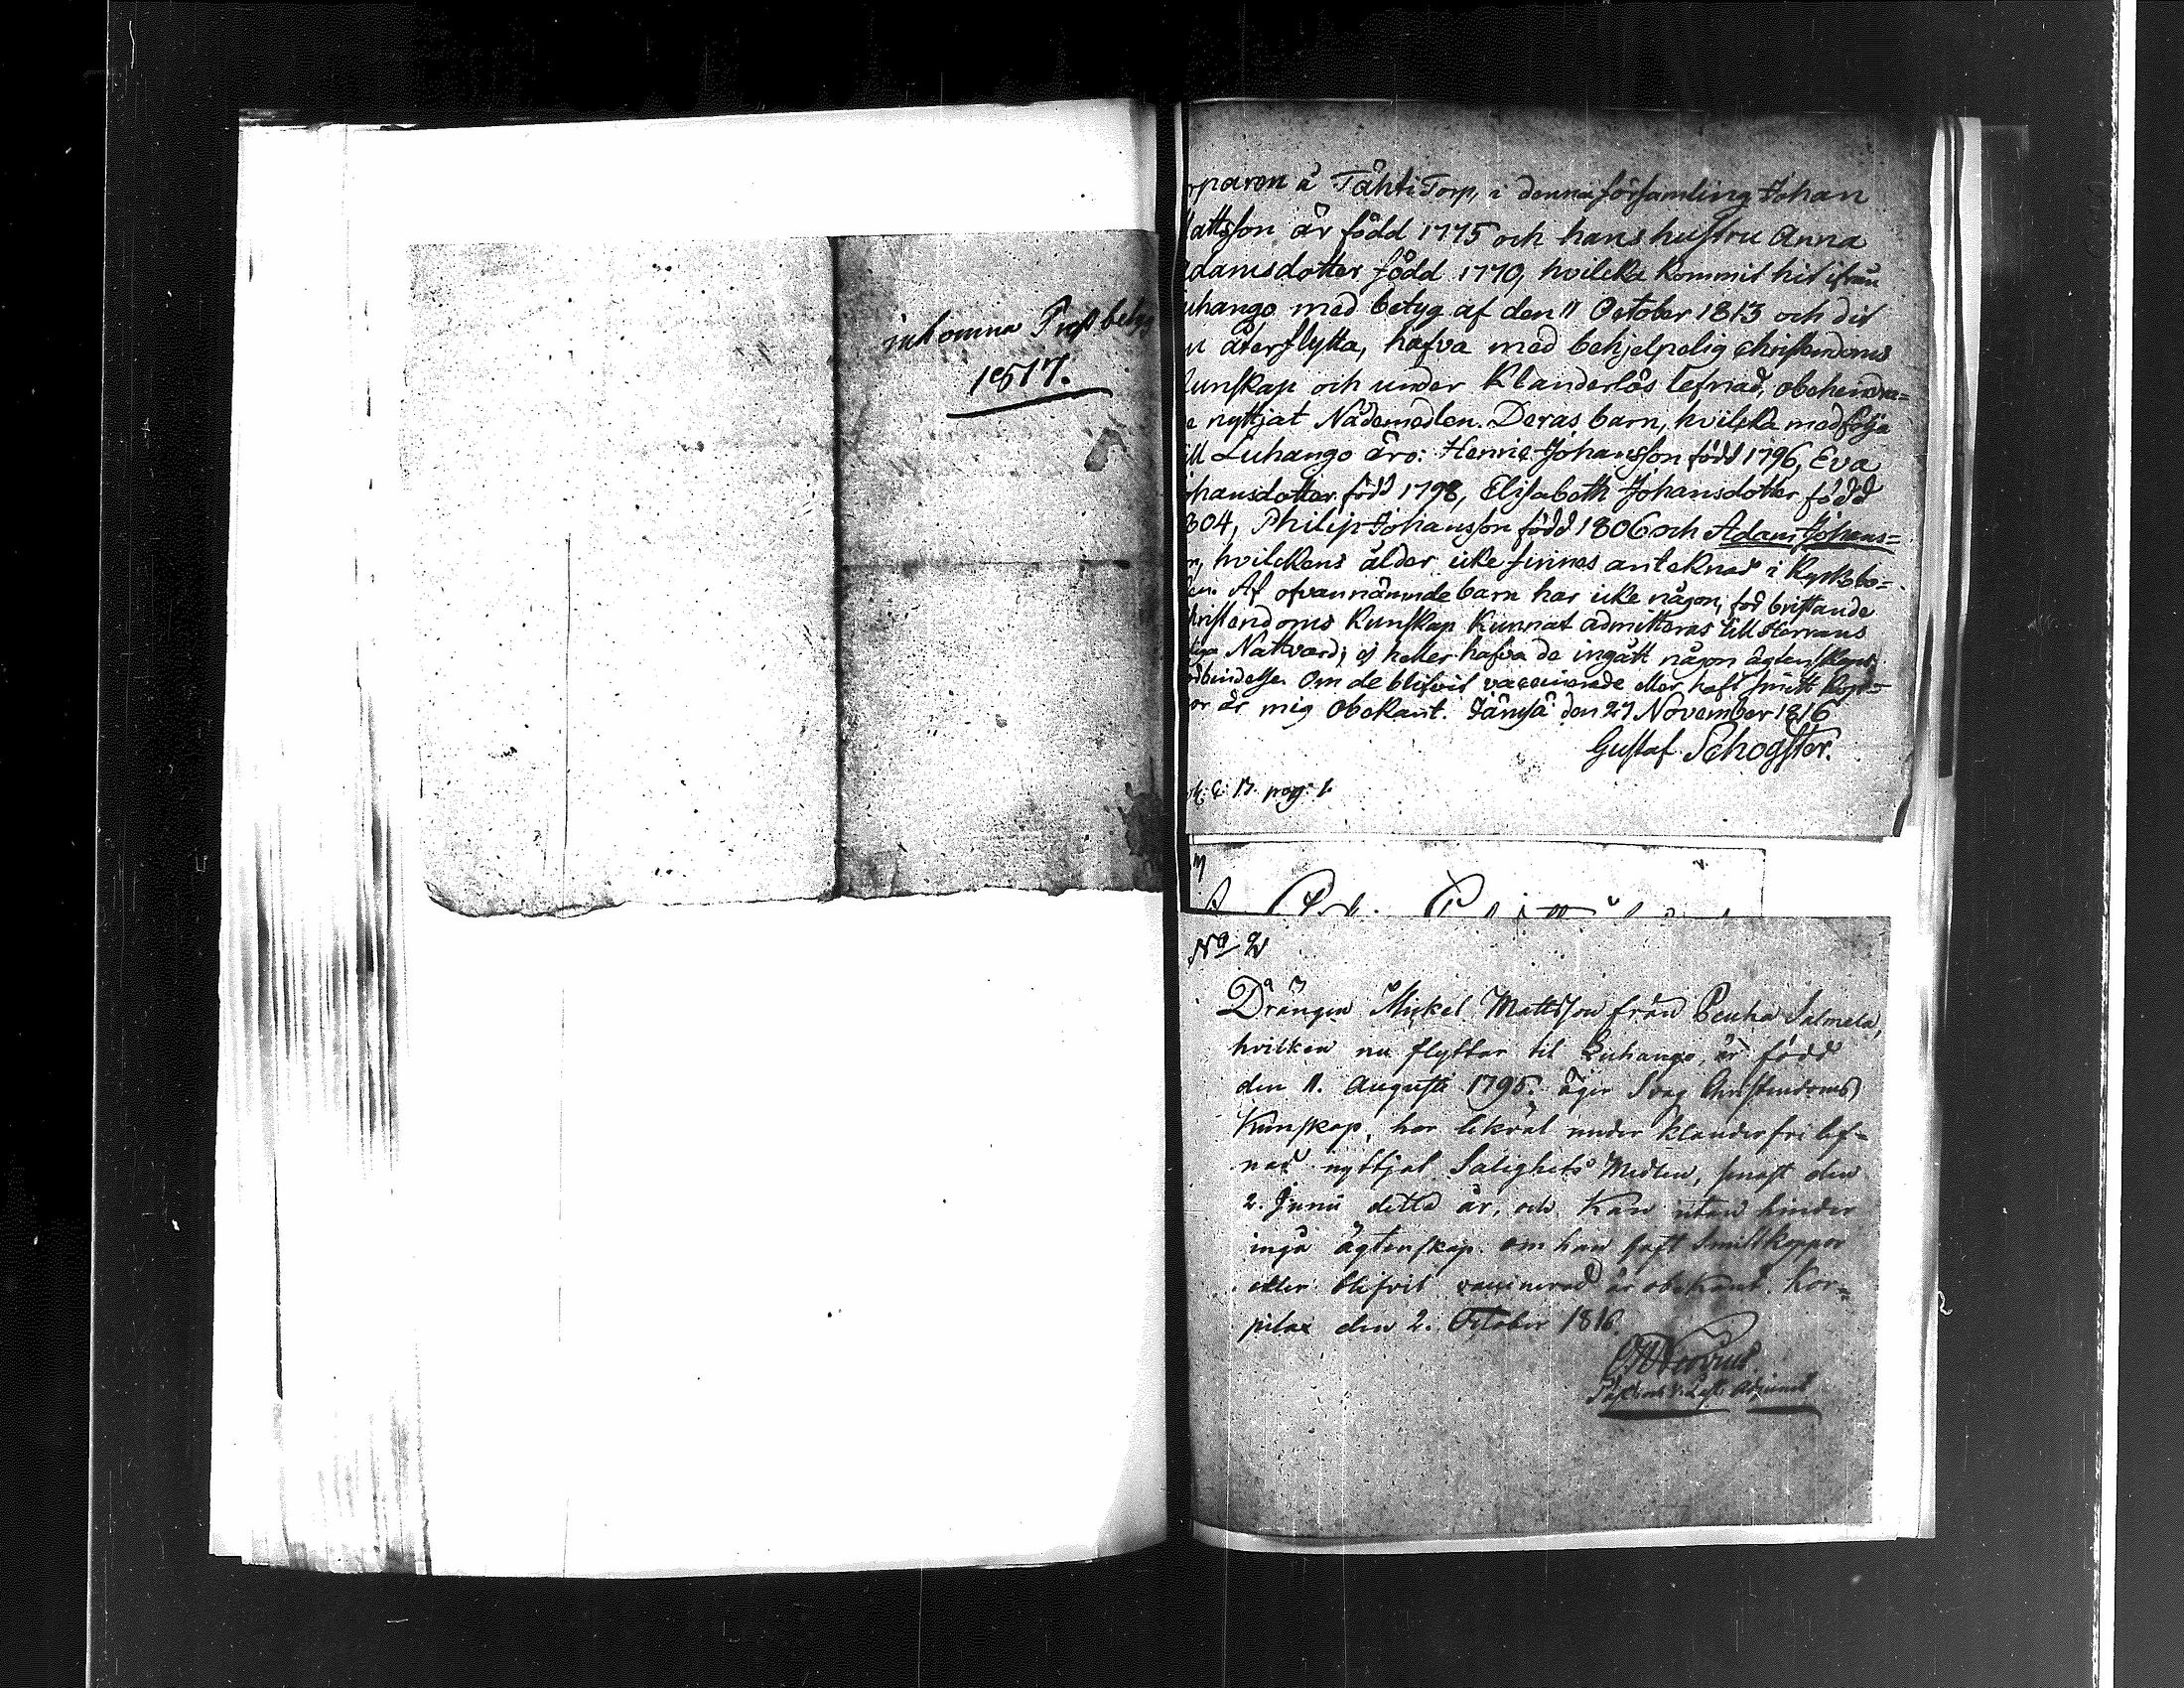 inkomna Prestbetyg
1817.
rparen å Tähti Torp, i denna församling Johan
attsson är född 1775 och hans hustru Anna
damsdotter född 1770, hvilcka kommit hit ifrån
uhango med betyg af den 11 October 1813 och dit
nu återflytta, hafva med behjelpelig christendoms
kunskap och under Klanderlös lefnad, obehindra=
e nyttjat Nådemedlen. Deras barn, hvilcka medfölja
ill Luhango äro: Henric Johansson född 1796, Eva
ohansdotter född 1798, Elisabeth Johansdotter född
804, Philip Johansson född 1806 och Adam Johans=
n, hvilckens ålder icke finnes anteknad i Kyrkobo=
ken. Af ofvannämnde barn har icke någon, för bristande
hristendoms Kunskap kunnat admitteras till Herrans
Nattvard; ej heller hafva de ingått någon ägtenskaps
örbindelse. Om de blifvit vaccinerade eller haft smitt kop=
or är mig obekant. Jämsä den 27 November 1816
Gustaf Schogster.
17. pag: 1.
No 2
Drängen Mickel Mattsson från Peuha Salmela,
hvilken nu flyttar til Luhango, är född
den 11. Augusti 1795. äger Svag Christendoms
Kunskap, har likväl under klanderfri lef=
nad nyttjat Salighets Medlen, senast den
2. Junii detta år, och kan utan hinder
ingå ägtenskap. om han haft Smittkoppor
eller blifvit vaccinerad är obekant. Kor=
pilax den 2. October 1816.
Adjunct